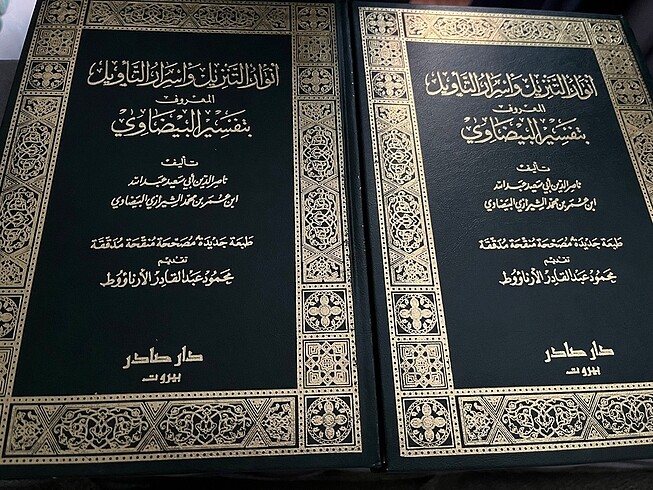 أنوار التنزيل وأسرار التأويل
المعروف
بتفسير البيضاوي
تأليف
ناصر الدين أبي سعيد عبد الله
ابن عمر بن محمد الشيرازي البيضاوي
طبعة جديدة مصححة منقحة مدققة
تقديم
محمود عبد القادر الأرناؤوط
دار صادر
بيروت
أنوار التنزيل وأسرار التأويل
المعروف
بتفسير البيضاوي
تأليف
ناصر الدين أبي سعيد عبد الله
ابن عمر بن محمد الشيرازي البيضاوي
طبعة جديدة مصححة منقحة مدققة
تقديم
محمود عبد القادر الأرناؤوط
دار صادر
بيروت